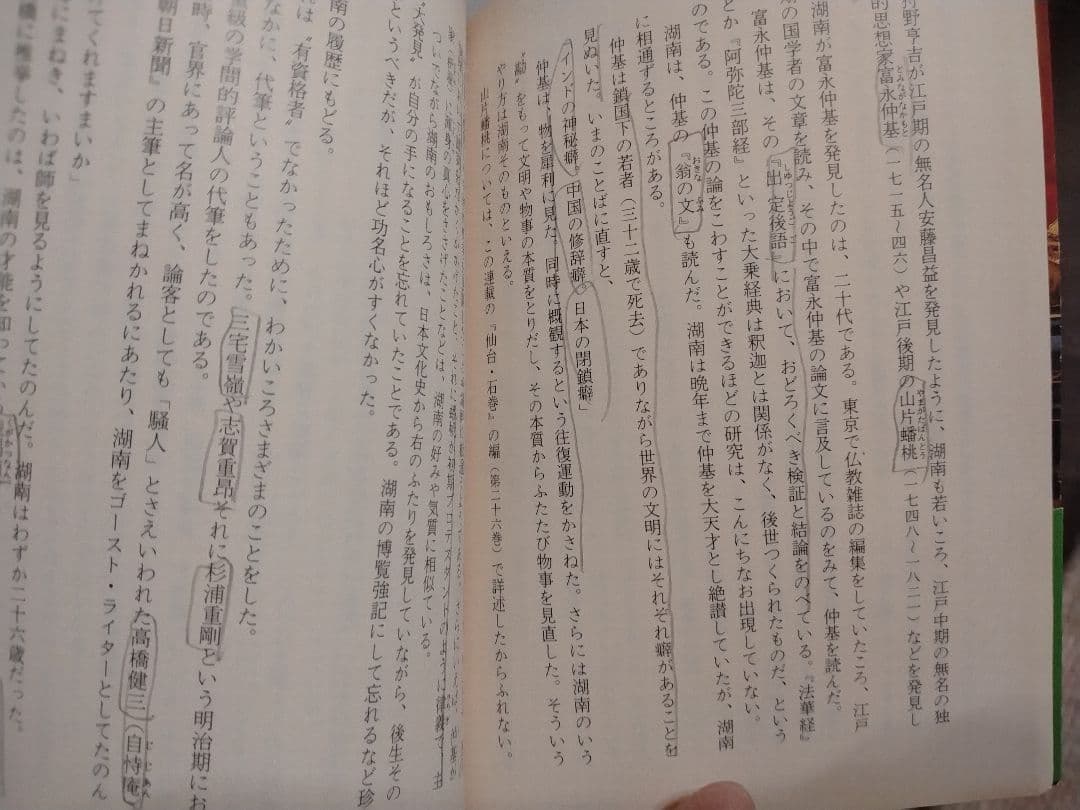 狩野亨吉が江戸期の無名人安藤昌益を発見したように、湖南も若いころ、江戸中期の無名の独
的思想家富永仲基(一七一五〜四六)や江戸後期の山片蟠桃(一七四八〜一八二一)などを発見し
湖南が富永仲基を発見したのは、二十代である。東京で仏教雑誌の編集をしていたころ、江戸
期の国学者の文章を読み、その中で富永仲基の論文に言及しているのをみて、仲基を読んだ。
富永仲基は、その『出定後語』において、おどろくべき検証と結論をのべている。『法華経』
とか『阿弥陀三部経』といった大乗経典は釈迦とは関係がなく、後世つくられたものだ、という
のである。この仲基の論をこわすことができるほどの研究は、こんにちなお出現していない。
湖南は、仲基の『翁の文』も読んだ。湖南は晩年まで仲基を大天才とし絶讃していたが、湖南
に相通ずるところがある。
仲基は鎖国下の若者(三十二歳で死去)でありながら世界の文明にはそれぞれ癖があることを
見ぬいた。いまのことばに直すと、
インドの神秘癖。中国の修辞癖。日本の閉鎖癖」
仲基は、物を犀利に見た。同時に概観するという往復運動をかさねた。さらには湖南のいう
〝勘〟をもって文明や物事の本質をとりだし、その本質からふたたび物事を見直した。そういう
やり方は湖南そのものといえる。
山片蟠桃については、この連載の『仙台・石巻』の編(第二十六巻)で詳述したからふれない。
ついでながら湖南のおもしろさは、日本文化史から右のふたりを発見していながら、後生その
大発見〟が自分の手になることを忘れていたことである。湖南の博覧強記にして忘れるなど珍
というべきだが、それほど功名心がすくなかった。
南の履歴にもどる。
は〝有資格者〟でなかったために、わかいころさまざまのことをした。
なかに、代筆ということもあった。三宅雪嶺や志賀重昂それに杉浦重剛という明治期にお
級の学問的評論人の代筆をしたのである。
時、官界にあって名が高く、論客としても「騒人」とさえいわれた高橋健三(自恃庵
朝日新聞』の主筆としてまねかれるにあたり、湖南をゴースト・ライターとしてたのん
てくれますまいか」
にまねき、いわば師を見るようにしてたのんだ。湖南はわずか二十六歳だった。